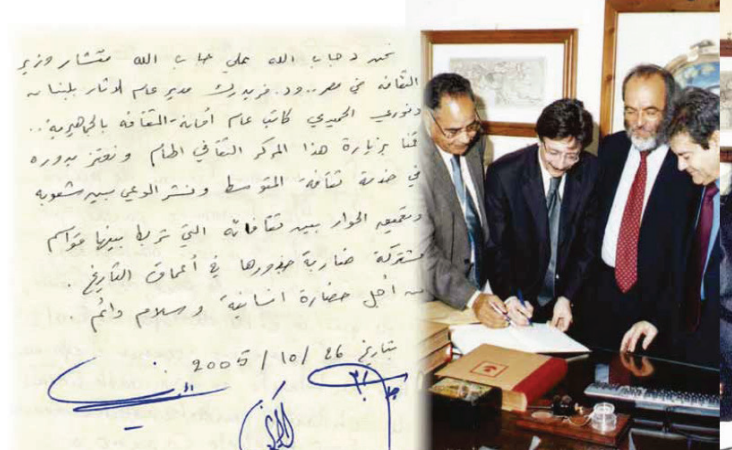 نحن د جاب الله علي جاب الله مستشار وزير
الثقافة في مصر.. ود. فريدرك مدير عام للآثار بلبنان
ونوري الحميدي كاتب عام أمانة الثقافة بالجماهيرية..
قمنا بزيارة هذا المركز الثقافي الهام ونعتز بدوره
في خدمة ثقافة المتوسط ونشر الوعي بين شعوبه
وتعميق الحوار بين ثقافاته التي تربط بينها قواسم
مشتركة ضاربة جذورها في أعماق التاريخ.
من أجل حضارة انسانية وسلام دائم
بتاريخ 26 / 10 / 2005